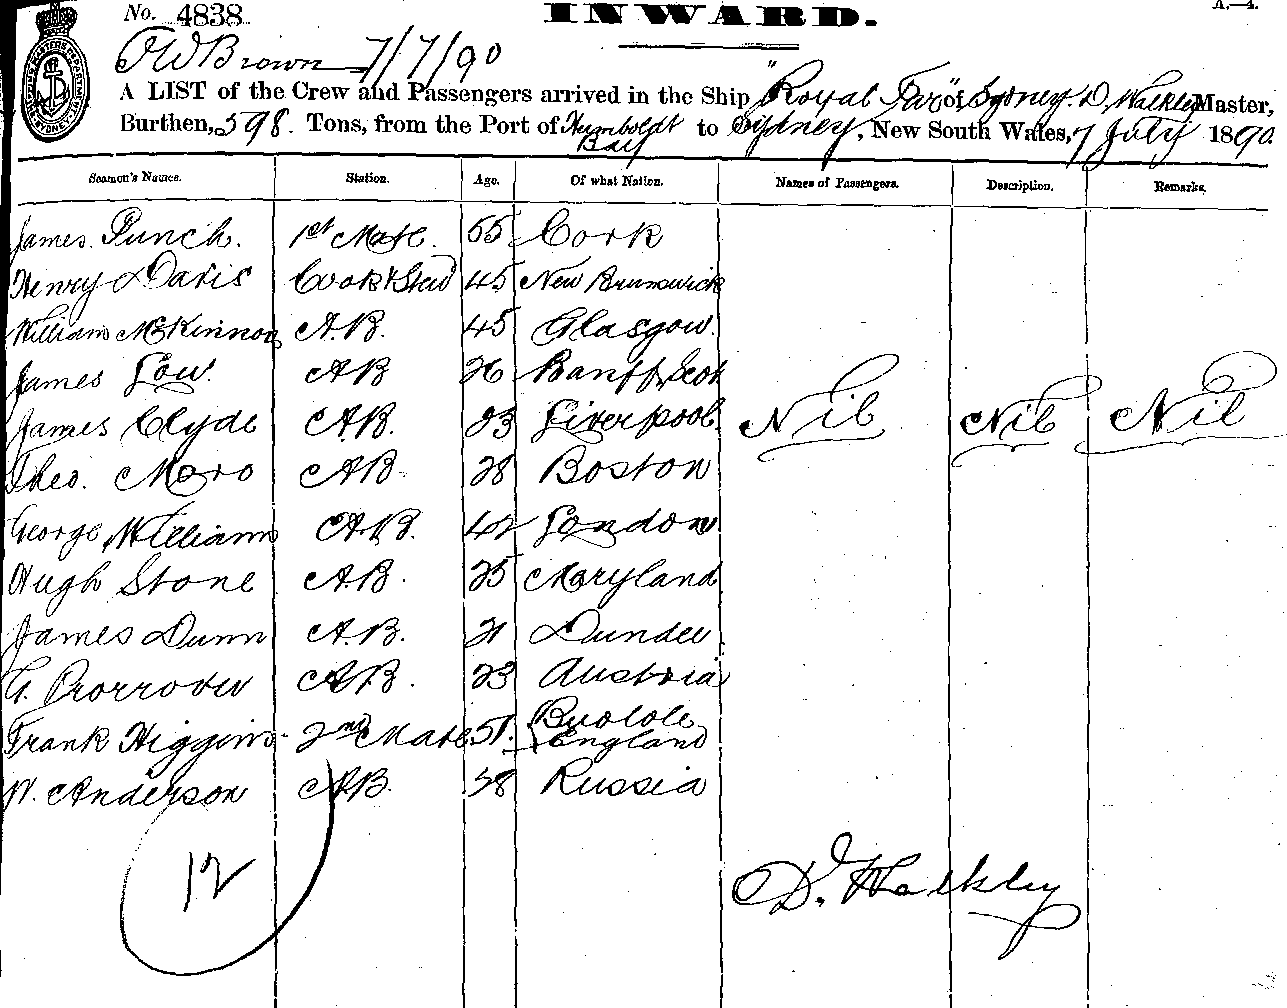 No. 4838 INWARD. A.—4.
Brown 7/7/90
A LIST of the Crew and Passengers arrived in the Ship "Royal Tar" of Sydney. D. Walkley Master,
Burthen, 598. Tons, from the Port of Humboldt Bay to Sydney, New South Wales, 7 July 1890.
Seamen's Names. Station. Age. Of what Nation. Names of Passengers. Description. Remarks.
James Punch. 1st Mate. 55 Cork
Henry Davis Cook & Stwd 45 New Brunswick
William McKinnon A.B. 45 Glasgow.
James Low. AB 26 Banff, Scot
James Clyde A.B. 23 Liverpool. Nil Nil Nil
Theo. Moro AB. 28 Boston
George Williams A.B. 42 London.
Hugh Stone A.B. 25 Maryland
James Dunn A.B. 21 Dundee.
G. A.B. 23 Austria
Frank Higgins 2nd Mate. 51. England
W. Anderson A.B. 38 Russia
12
D. Walkley